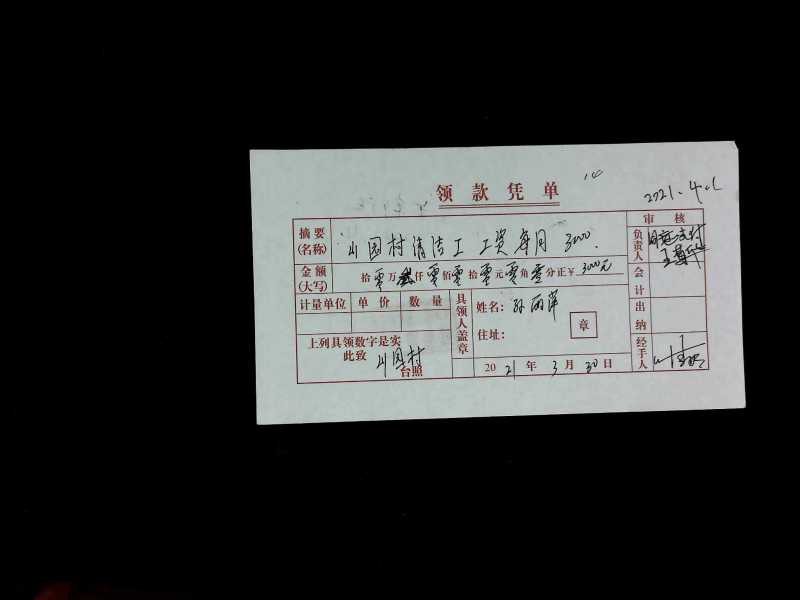 领款凭单
2021.4.
摘要(名称) 山园村清洁工工资每月3000. 审核
负责人 同意支付
金额(大写) 拾零万 仟零佰零拾零元零角零分正¥ 3000元 会计
计量单位 单价 数量 具领人盖章 姓名: 孙丽萍 出纳
住址: 章
上列具领数字是实 经手人
此致 山园村
台照 2021年3月30日